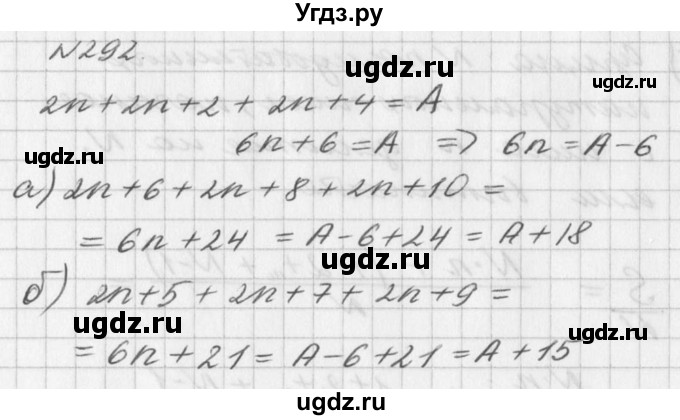 Угдз.ру
N292.
2n+2n+2+2n+4=A
6n+6=A => 6n=A-6
а) 2n+6+2n+8+2n+10=
=6n+24 =A-6+24=A+18
б) 2n+5+2n+7+2n+9=
=6n+21=A-6+21=A+15
ugdz.ru
ugdz.ru
ugdz.ru
ugdz.ru
ugdz.ru
ugdz.ru
ugdz.ru
ugdz.ru
ugdz.ru